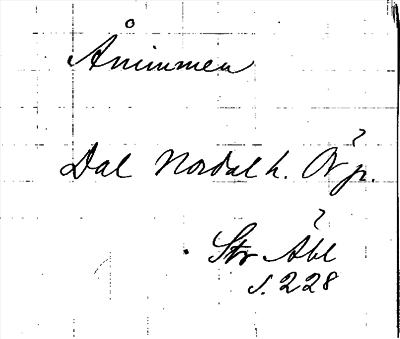 Ånimmen
Dal Nordal h. Ör p.
Str Åbl
s. 228